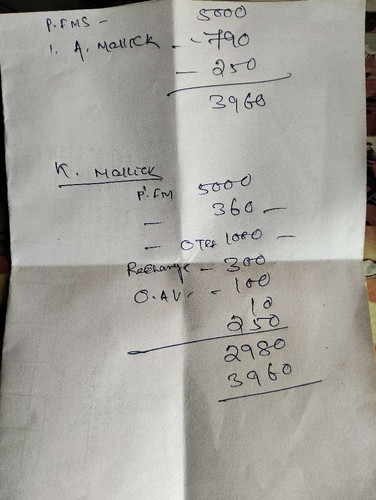 P.FMS - 5000
1. A. Mallick - - 790
- 250
3960
K. Mallick
P.FM 5000
- 360 -
- 1000 -
Recharge - 300
O.AV. - 100
10
250
2980
3960